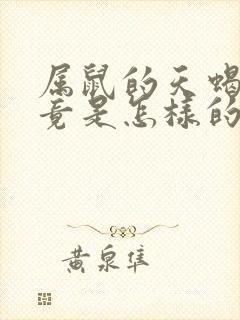 属鼠的天蝎
竟是怎样的
黄泉隼